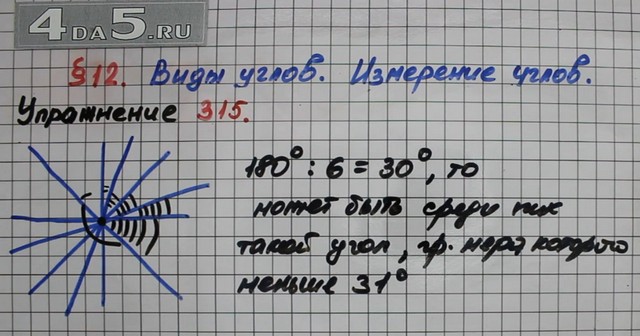 4DA5.RU
§12. Виды углов. Измерение углов.
Упражнение 315.
180° : 6 = 30°, то
может быть среди них
такой угол, гр. мера которого
меньше 31°